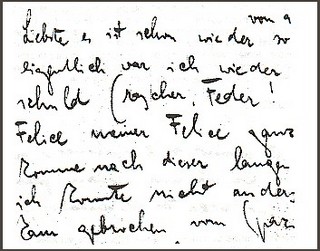 vom 9
Liebste es ist schon wieder so
eigentlich war ich wieder
schuld (rascher, Feder!
Felice meiner Felice ganz
Komme nach dieser langen
ich konnte nicht ander-
gebrochen vom